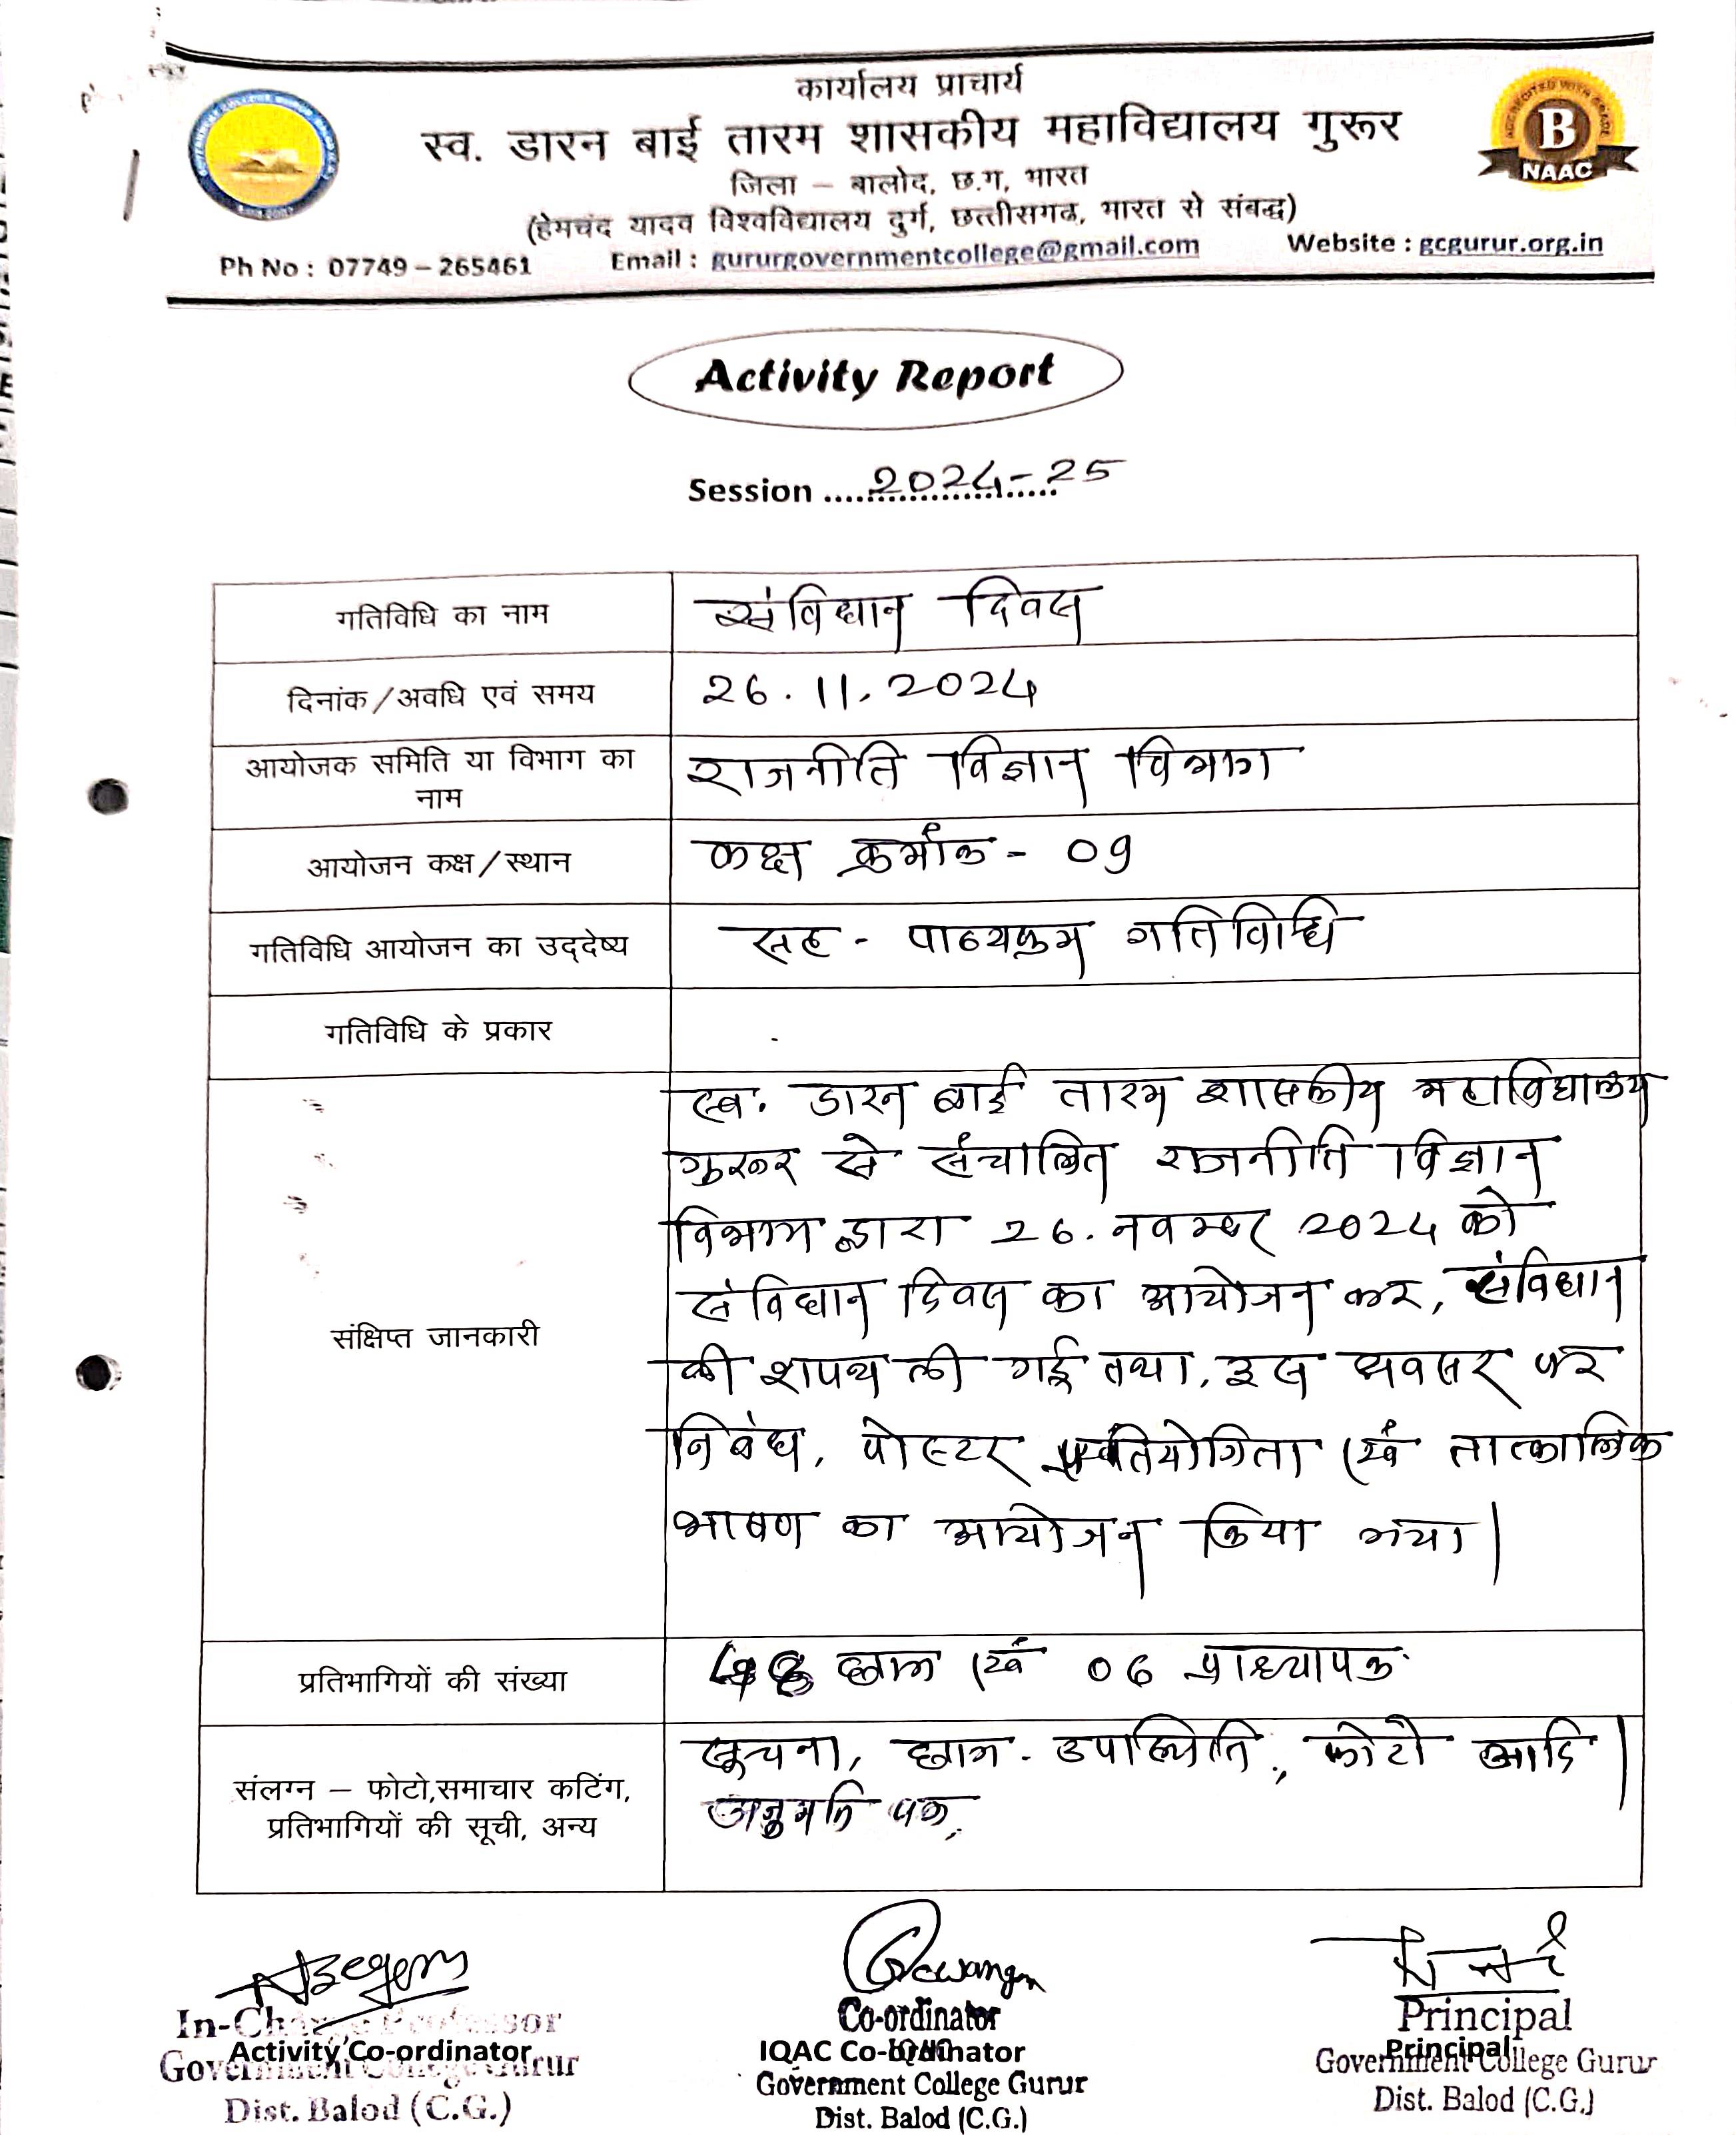 कार्यालय प्राचार्य
स्व. डारन बाई तारम शासकीय महाविद्यालय गुरूर
जिला – बालोद, छ.ग, भारत
(हेमचंद यादव विश्वविद्यालय दुर्ग, छत्तीसगढ, भारत से संबद्ध)
Ph No : 07749 – 265461 Email : gururgovernmentcollege@gmail.com Website : gcgurur.org.in
B
NAAC
Activity Report
Session ........2024-25
गतिविधि का नाम
संविधान दिवस
दिनांक/अवधि एवं समय
26.11.2024
आयोजक समिति या विभाग का
नाम
राजनीति विज्ञान विभाग
आयोजन कक्ष/स्थान
कक्ष क्रमांक - 09
गतिविधि आयोजन का उद्देष्य
सह - पाठ्यक्रम गतिविधि
गतिविधि के प्रकार
संक्षिप्त जानकारी
स्व. डारन बाई तारम शासकीय महाविद्यालय
गुरूर से संचालित राजनीति विज्ञान
विभाग द्वारा 26. नवम्बर 2024 को
संविधान दिवस का आयोजन कर, संविधान
की शपथ ली गई तथा, इस अवसर पर
निबंध, पोस्टर प्रतियोगिता एवं तात्कालिक
भाषण का आयोजन किया गया|
प्रतिभागियों की संख्या
छात्र एवं 06 प्राध्यापक
संलग्न – फोटो,समाचार कटिंग,
प्रतिभागियों की सूची, अन्य
सूचना, छात्र - उपस्थिति, फोटो आदि|
अनुमति पत्र,
In-Charge Professor
Activity Co-ordinator
Government College Gurur
Dist. Balod (C.G.)
Co-ordinator
IQAC Co-ordinator
Government College Gurur
Dist. Balod (C.G.)
Principal
Principal
Government College Gurur
Dist. Balod (C.G.)